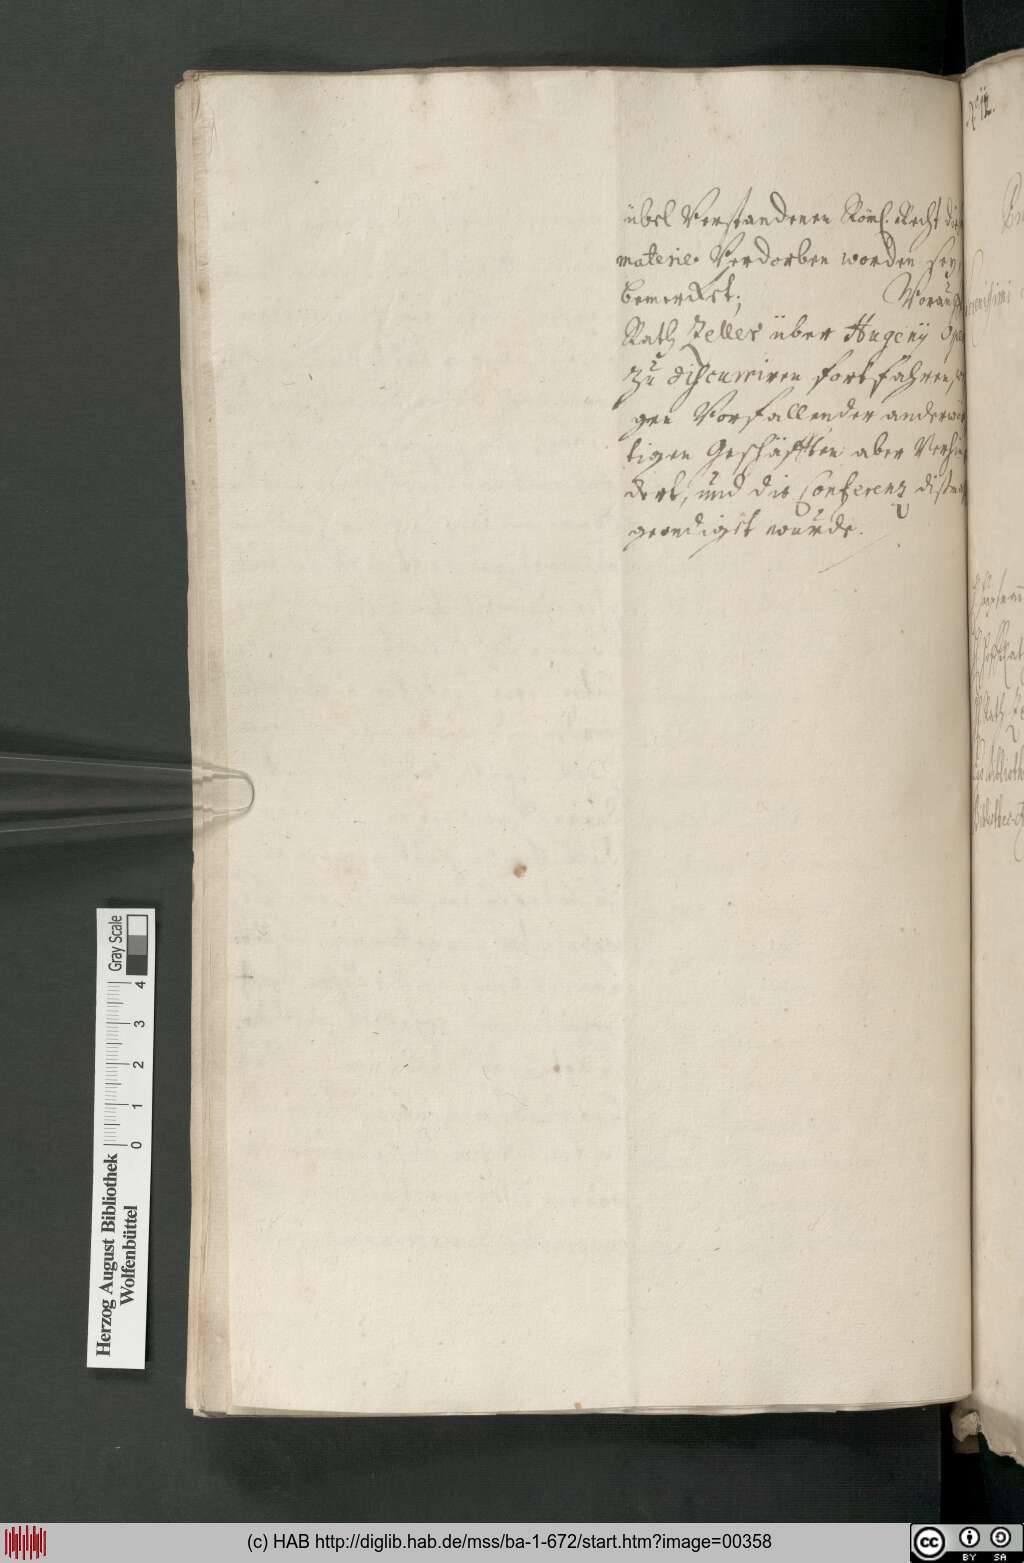 übel Verstandenen Röml. Recht die
materie Verdorben worden sey,
bemerckt; Worauf
Rath Zeller über Hugenij
zu discurriren fortfahren,
gen Vorfallender anderwär
tigen Geschäfften aber Verhin
dert, und die Conferenz dißmal
geendiget wurde.
No 12.
Rath
Gray Scale
0 1 2 3 4
Herzog August Bibliothek
Wolfenbüttel
(c) HAB http://diglib.hab.de/mss/ba-1-672/start.htm?image=00358
cc BY SA